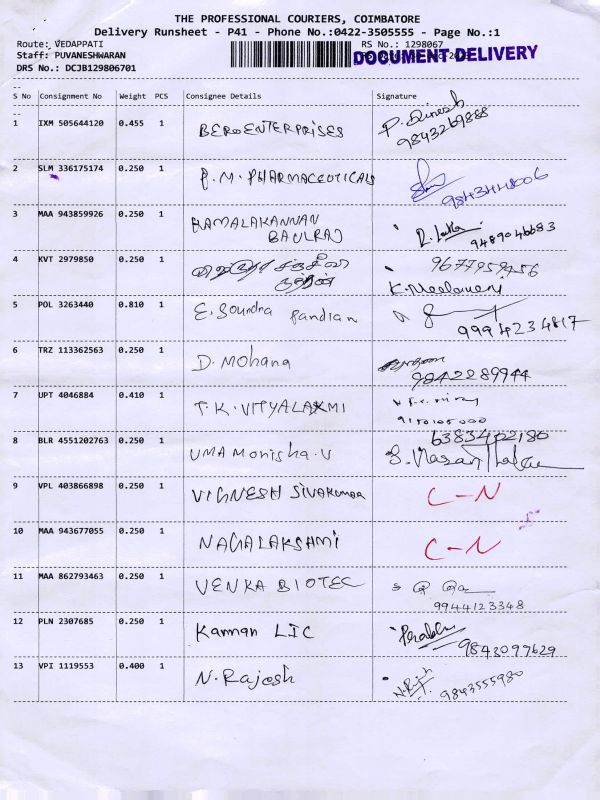 THE PROFESSIONAL COURIERS, COIMBATORE
Delivery Runsheet - P41 - Phone No.:0422-3505555 - Page No.:1
Route: VEDAPPATI
RS No.: 1298067
Staff: PUVANESHWARAN
DOCUMENT DELIVERY
DRS No.: DCJB129806701
S No Consignment No Weight PCS Consignee Details Signature
1 IXM 505644120 0.455 1 BERO ENTERPRISES P. Dinesh
9843269888
2 SLM 336175174 0.250 1 P. M. PHARMACEUTICALS
3 MAA 943859926 0.250 1 KAMALAKANNAN
BAULRAJ
9489046683
4 KVT 2979850 0.250 1
K. Neelaveni
5 POL 3263440 0.810 1 E. Soundra Pandian
9994234817
6 TRZ 113362563 0.250 1 D. Mohana
9842289944
7 UPT 4046884 0.410 1 T. K. VITYALAXMI
8 BLR 4551202763 0.250 1 UMA Monisha. V
6383402180
9 VPL 403866898 0.250 1 VIGNESH SIVAKUMAR C-N
10 MAA 943677055 0.250 1 NAGALAKSHMI C-N
11 MAA 862793463 0.250 1 VENKA BIOTEC
9944123348
12 PLN 2307685 0.250 1 Kannan LIC Prabhu
9843097629
13 VPI 1119553 0.400 1 N. Rajesh N. Rajesh
9843555980